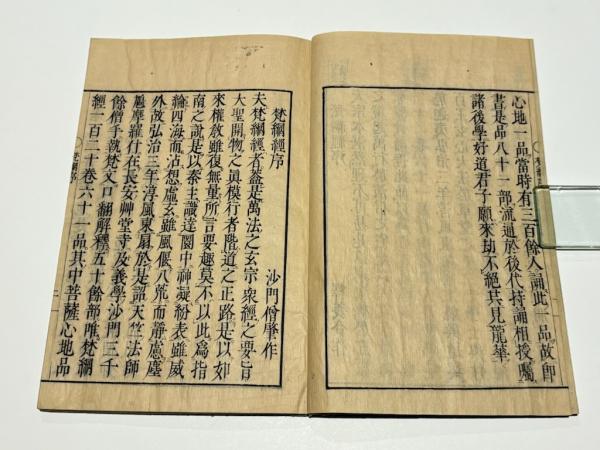 心地一品當時有三百餘人誦此一品故即
書是品八十一部流通於後代持誦相授囑
諸後學好道君子願來劫不絕共見龍華
梵網經序
沙門僧肇作
夫梵網經者蓋是萬法之玄宗衆經之要旨
大聖開物之眞模行者階道之正路是以如
來權敎雖復無量所言要趣莫不以此爲指
南之說是以秦主識達圜中神凝紛表雖威
綸四海而沾想虛玄雖風偃八荒而靜慮塵
外故弘治三年淳風東扇於是詔天竺法師
鳩摩羅什在長安艸堂寺及義學沙門三千
餘僧手執梵文口翻解釋五十餘部唯梵網
經一百二十卷六十一品其中菩薩心地品